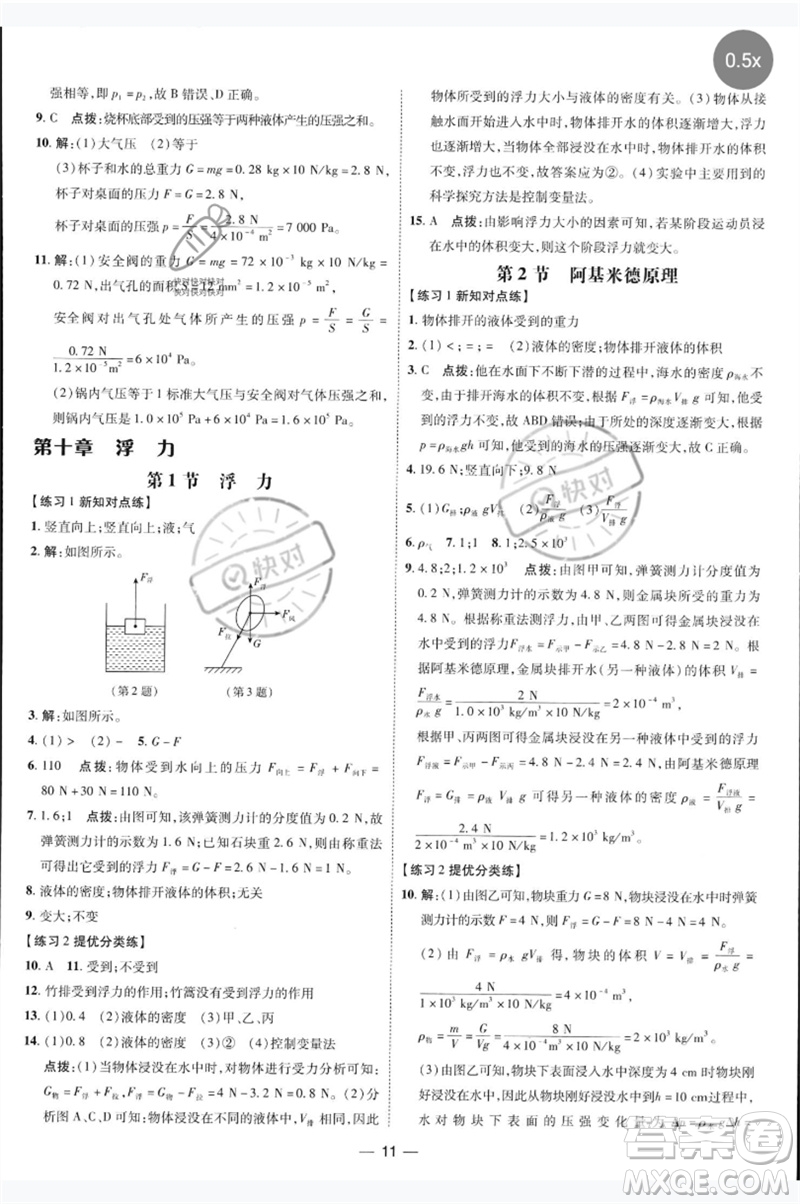 0.5x
强相等,即 p₁=p₂,故 B 错误、D 正确。
9. C 点拨:烧杯底部受到的压强等于两种液体产生的压强之和。
10. 解:(1)大气压 (2)等于
(3)杯子和水的总重力 G=mg=0.28 kg×10 N/kg=2.8 N,
杯子对桌面的压力 F=G=2.8 N,
杯子对桌面的压强 p=F/S=2.8 N/(4×10⁻⁴ m²)=7 000 Pa。
11. 解:(1)安全阀的重力 G=mg=72×10⁻³ kg×10 N/kg=
0.72 N,出气孔的面积 S=12 mm²=1.2×10⁻⁵ m²,
快对快对快对
快对快对快对
安全阀对出气孔处气体所产生的压强 p=F/S=G/S=
0.72 N/(1.2×10⁻⁵ m²)=6×10⁴ Pa。
(2)锅内气压等于1标准大气压与安全阀对气体的压强之和,
则锅内气压为 1.0×10⁵ Pa+6×10⁴ Pa=1.6×10⁵ Pa。
第十章 浮 力
第1节 浮 力
【练习1 新知对点练】
1. 竖直向上;竖直向上;液;气
2. 解:如图所示。
F浮
F浮
F风
F拉
(第2题) (第3题)
3. 解:如图所示。
4. (1)> (2)- 5. G-F
6. 110 点拨:物体受到水向上的压力 F向上=F浮+F向下=
80 N+30 N=110 N。
7. 1.6;1 点拨:由图可知,该弹簧测力计的分度值为0.2 N,故
弹簧测力计的示数为 1.6 N;已知石块重 2.6 N,由称重法
可得出它受到的浮力 F浮=G-F=2.6 N-1.6 N=1 N。
8. 液体的密度;物体排开液体的体积;无关
9. 变大;不变
【练习2 提优分类练】
10. A 11. 受到;不受到
12. 竹排受到浮力的作用;竹篙没有受到浮力的作用
13. (1)0.8 (2)液体的密度 (3)甲、乙、丙
14. (1)0.4 (2)液体的密度 (3)② (4)控制变量法
点拨:(1)当物体浸没在水中时,对物体进行受力分析可知:
G物=F浮+F拉,故 F浮=G物-F拉=4 N-3.6 N=0.4 N。(2)分
析图A、C、D可知:物体浸没在不同的液体中,V排相同,因此
物体所受到的浮力大小与液体的密度有关。(3)物体从接
触水面到浸没在水中时,物体排开水的体积逐渐增大,浮力
逐渐增大,当物体全部浸没在水中后,物体排开水的体积
不变,浮力大小不变,故答案应为②。(4)实验中采用的
科学探究方法是控制变量法。
15. A 点拨:由影响浮力大小的因素可知,若某阶段运动员浸
在水中的体积变大,则这个阶段浮力就变大。
第2节 阿基米德原理
【练习1 新知对点练】
1. 物体排开的液体受到的重力
2. (1)<;=;= (2)液体的密度;物体排开液体的体积
3. C 点拨:他在水面下不断下潜的过程中,海水的密度ρ海水不变,
由于排开海水的体积不变,根据 F浮=ρ海水V排g 可知,他受
到的浮力不变,故 ABD 错误;由于所处的深度逐渐变大,根据
p=ρ海水gh 可知,海水的压强逐渐变大,故 C 正确。
4. 19.6 N;竖直向下;9.8 N
5. (1)G排;ρ液gV排 (2)F浮/(V排g) (3)F浮/(ρ液g)
6. ρ气 7. 1;1 8. 1;2.5×10³
9. 4.8;2;1.2×10³ 点拨:由图甲可知,弹簧测力计分度值为
0.2 N,弹簧测力计的示数为 4.8 N,金属块所受的重力为
4.8 N。根据称重法测浮力,由甲、乙两图可知金属块浸没在
水中时受到的浮力 F浮水=F示甲-F示乙=4.8 N-2.8 N=2 N。
根据阿基米德原理,金属块排开水(另一种液体)的体积 V排=
F浮水/(ρ水g)=2 N/(1.0×10³ kg/m³×10 N/kg)=2×10⁻⁴ m³,
根据甲、丙两图可得金属块浸没在另一种液体中的浮力
F浮液=F示甲-F示丙=4.8 N-2.4 N=2.4 N,由阿基米德原理
F浮=G排=ρ液V排g 可得另一种液体的密度 ρ液=F浮液/(V排g)=
2.4 N/(2×10⁻⁴ m³×10 N/kg)=1.2×10³ kg/m³。
【练习2 提优分类练】
10. 解:(1)由图乙可知,物块重力 G=8 N,物块浸没在水中时,弹簧
测力计的示数 F=4 N,F浮=G-F=8 N-4 N=4 N。
(2)由 F浮=ρ水gV排得,物块的体积 V=V排=F浮/(ρ水g)=
4 N/(1×10³ kg/m³×10 N/kg)=4×10⁻⁴ m³,
ρ物=m/V=G/(Vg)=8 N/(4×10⁻⁴ m³×10 N/kg)=2×10³ kg/m³。
(3)由图乙可知,物块刚好浸没在水中时浸入水中深度为14 cm-
4 cm=10 cm,因此从物块刚好接触水面到刚好浸没在水中过程中,
水对物块下表面的压强变化量
11
快对
答案圈
MXQE.COM